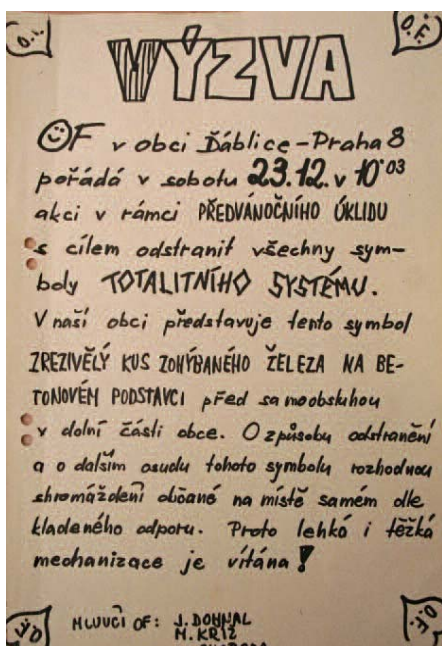 O.F.
O.F.
VÝZVA
OF v obci Ďáblice-Praha 8
pořádá v sobotu 23.12. v 10·03
akci v rámci PŘEDVÁNOČNÍHO ÚKLIDU
s cílem odstranit všechny sym-
boly TOTALITNÍHO SYSTÉMU.
V naší obci představuje tento symbol
ZREZIVĚLÝ KUS ZOHÝBANÉHO ŽELEZA NA BE-
TONOVÉM PODSTAVCI před samoobsluhou
v dolní části obce. O způsobu odstranění
a o dalším osudu tohoto symbolu rozhodnou
shromáždění občané na místě samém dle
kladeného odporu. Proto lehká i těžká
mechanizace je vítána!
O.F.
MLUVČÍ OF: J. DOHNAL
M. KŘÍŽ
O.F.